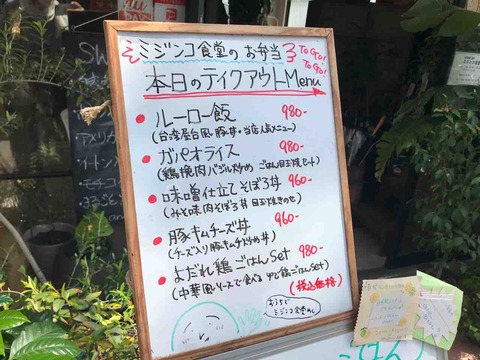 ミジンコ食堂のお弁当
To Go!
To Go!
本日のテイクアウトMenu
ルーロー飯 980-
(台湾屋台風豚丼・当店人気メニュー)
ガパオライス 980-
(鶏挽肉バジル炒め ごはん目玉焼セット)
味噌仕立てそぼろ丼 960-
(みそ味肉そぼろ丼 目玉焼きのせ)
豚キムチーズ丼 960-
(チーズ入り豚キムチ炒め丼)
よだれ鶏ごはんSet 980-
(中華風ソースで食べるゆで鶏ごはんSet)
(税込価格)
おうちで
ミジンコ食堂めし